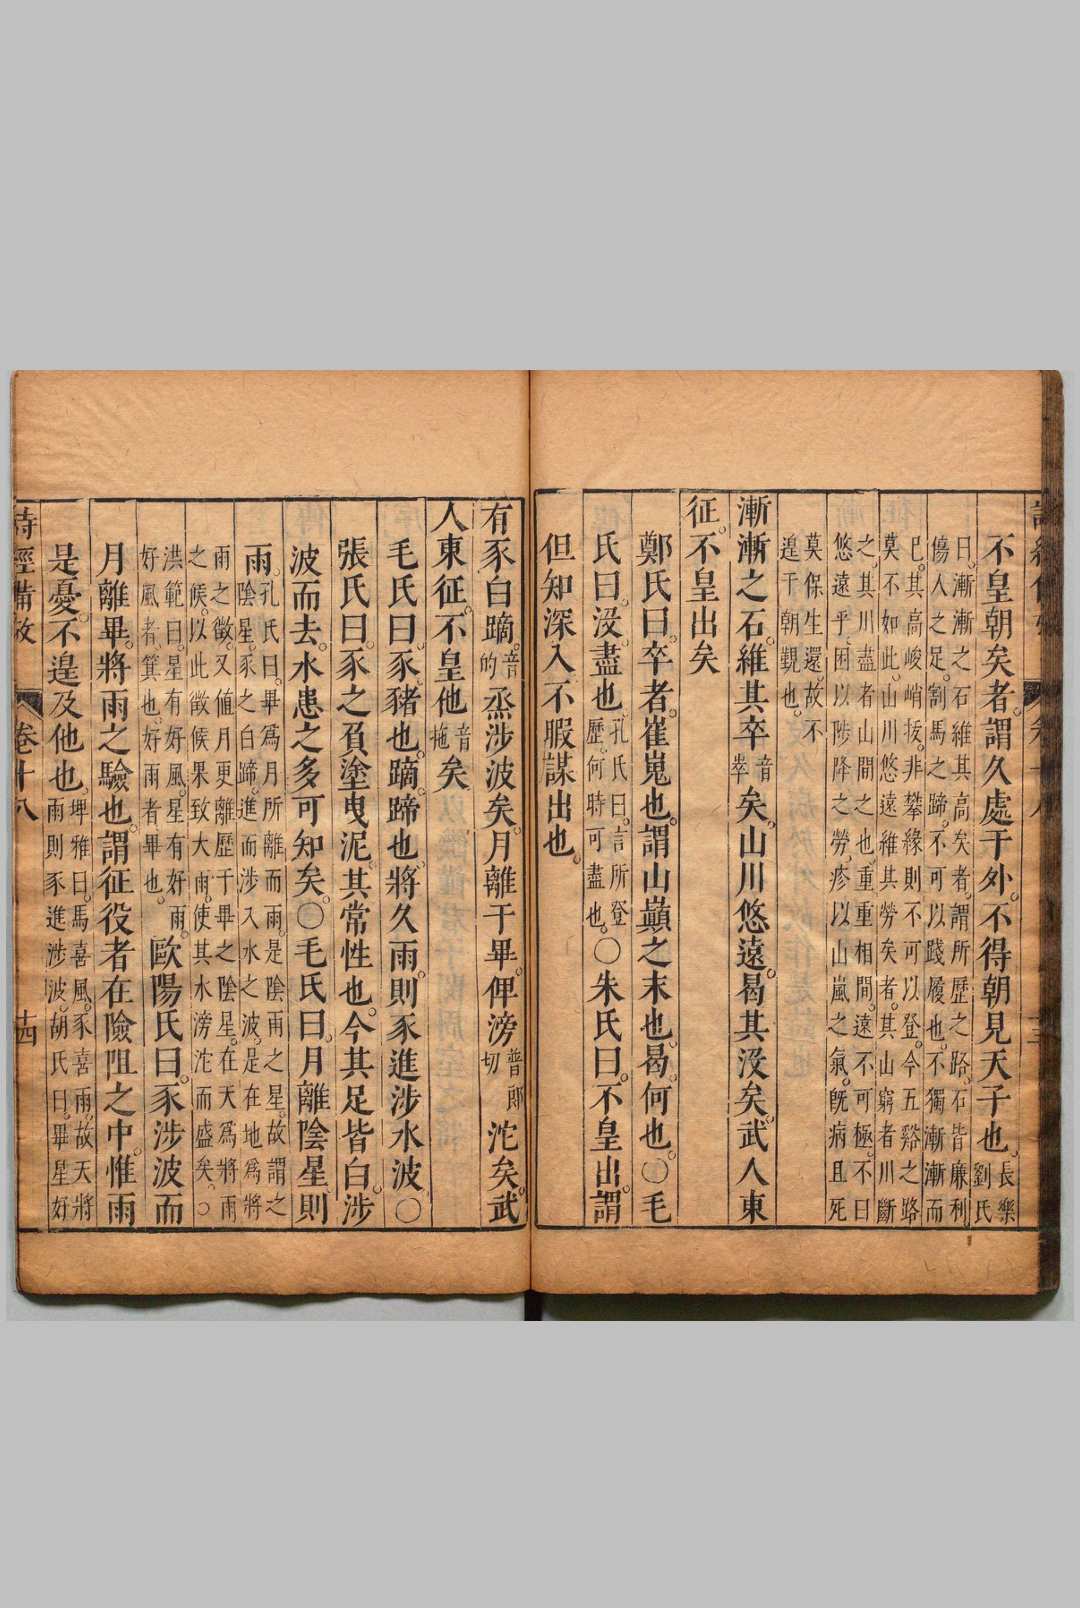 不皇朝矣者。謂久處于外。不得朝見天子也。長樂劉氏
曰。漸漸之石維其高矣者。謂所歷之路。石皆廉利
傷人之足。割馬之蹄。不可以踐履也。不獨漸漸而
已。其高峻峭拔。非攀緣則不可以登。今五谿之路
莫不如此。山川悠遠維其勞矣者。其山窮者川斷
之。其川盡者山間之也。重重相間。遠不可極。不曰
悠遠乎。困以陟降之勞。瘮以山嵐之氣。旣病且死
莫保生還。故不
遑于朝覲也。
漸漸之石。維其卒音崒矣。山川悠遠。曷其没矣。武人東
征。不皇出矣
鄭氏曰。卒者。崔嵬也。謂山巔之末也。曷何也。○毛
氏曰。没。盡也。孔氏曰。言所登歷。何時可盡也。○朱氏曰。不皇出。謂
但知深入不暇謀出也。
有豕白蹢。音的烝涉波矣。月離于畢。俾滂普郎切沱矣。武
人東征。不皇他音拖矣
毛氏曰。豕。豬也。蹢。蹄也。將久雨。則豕進涉水波。○
張氏曰。豕之負塗曳泥。其常性也。今其足皆白。涉
波而去。水患之多可知矣。○毛氏曰。月離陰星。則
雨。孔氏曰。畢爲月所離而雨。是陰雨之星。故謂之
陰星。豕之白蹄。進而涉入水之波。是在地爲將
雨之徵。又值月更離歷于畢之陰星。在天爲將雨
之候。以此徵候果致大雨。使其水滂沱而盛矣。○
洪範曰。星有好風。星有好雨。
好風者。箕也。好雨者畢也。歐陽氏曰。豕涉波而
月離畢。將雨之驗也。謂征役者在險阻之中。惟雨
是憂。不遑及他也。埤雅曰。馬喜風。豕喜雨。故天將
雨則豕進涉波。胡氏曰。畢星好
卷十八
十四